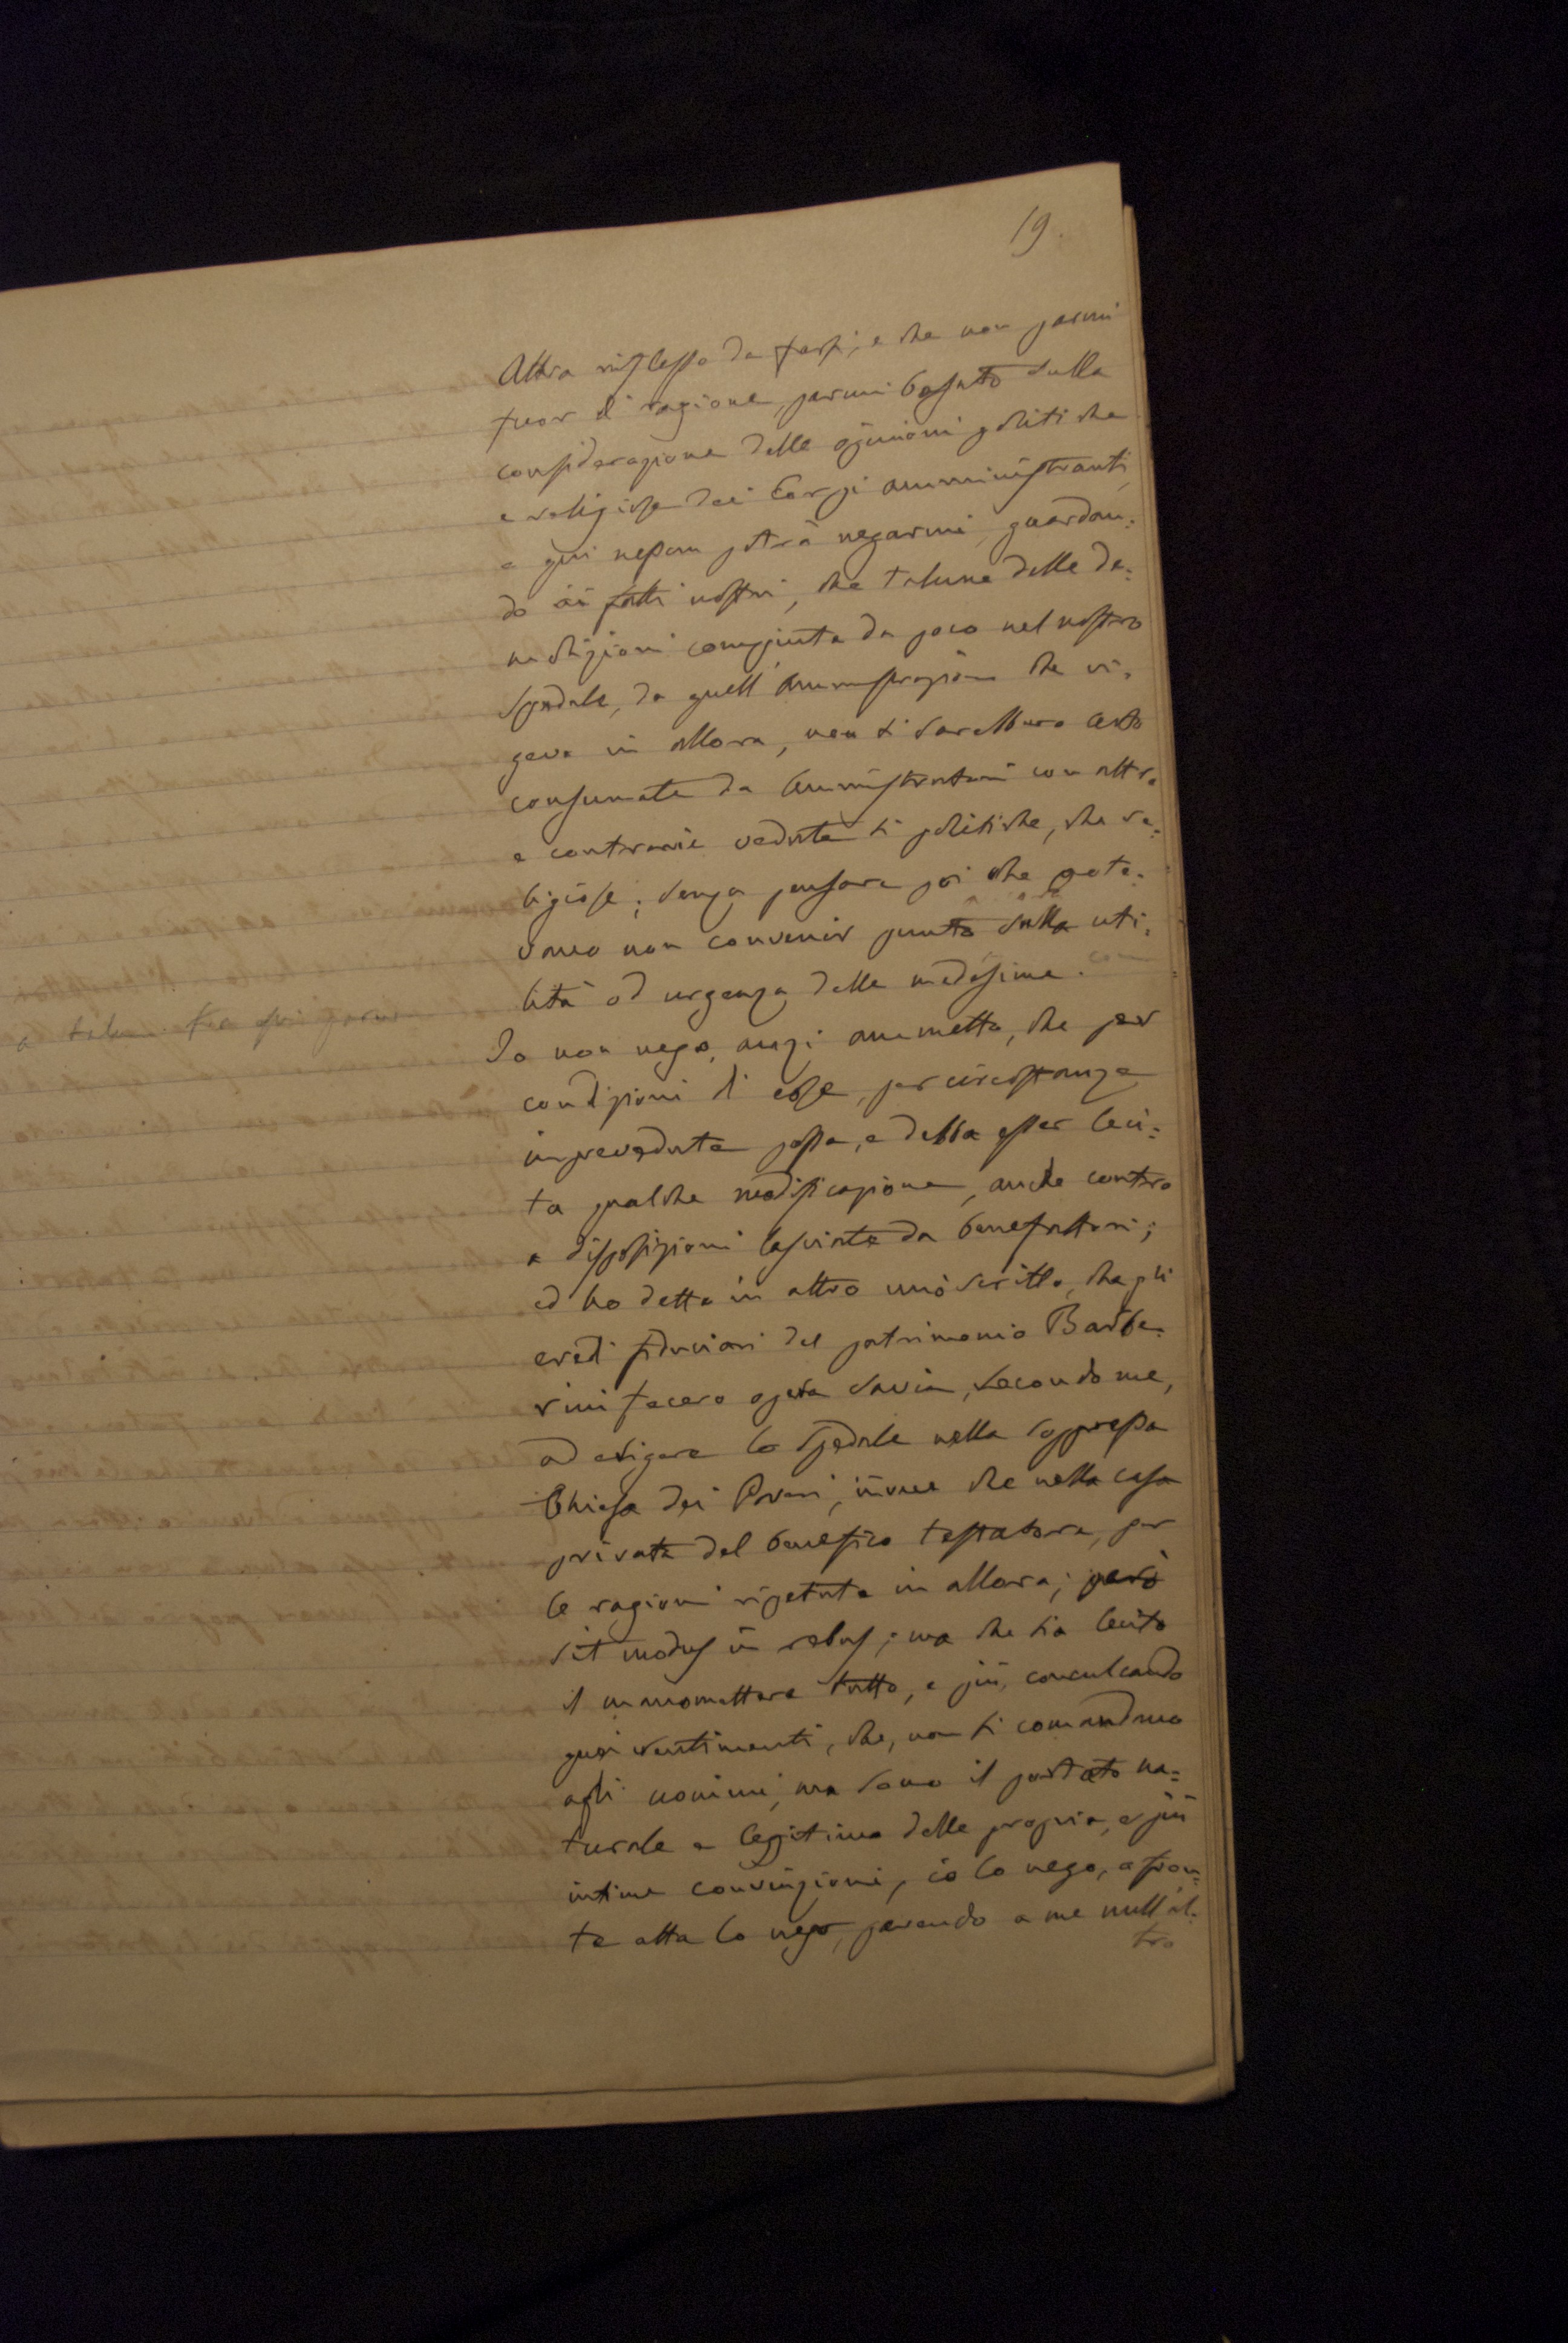 19.
Altro riflesso da farsi, e che non parmi
fuor di ragione, parmi basato sulla
considerazione delle opinioni politiche
e religiose dei Corpi amministranti,
e qui nessun potrà negarmi, guardan=
do ai fatti nostri, che talune delle de=
molizioni compiute da poco nel nostro
Spedale, da quell'Amministrazione che vi=
geva in allora, non si sarebbero certo
consumate da Amministratori con altre
e contrarie vedute sì politiche, che re=
ligiose; senza pensare poi che pote=
vano non convenir punto sulla uti=
lità od urgenza delle medesime.
Io non nego, anzi ammetto, che per
condizioni di cose, per circostanze
imprevedute possa, e debba esser leci=
ta qualche modificazione, anche contro
a disposizioni lasciate da benefattori;
ed ho detto in altro mio scritto, che gli
eredi fiduciari del patrimonio Barbe=
rini fecero opera savia, secondo me,
ad erigere lo Spedale nella soppressa
Chiesa dei Poveri, invece che nella casa
privata del benefico testatore, per
le ragioni ripetute in allora; però
sit modus in rebus; ma che sia lecito
il manomettere tutto, e più, conculcando
quei sentimenti, che, non si comandano
agli uomini, ma sono il portato na=
turale e legittimo delle proprie, e più
intime convinzioni, io lo nego, a fron=
te alta lo nego, parendo a me null'al=
tro